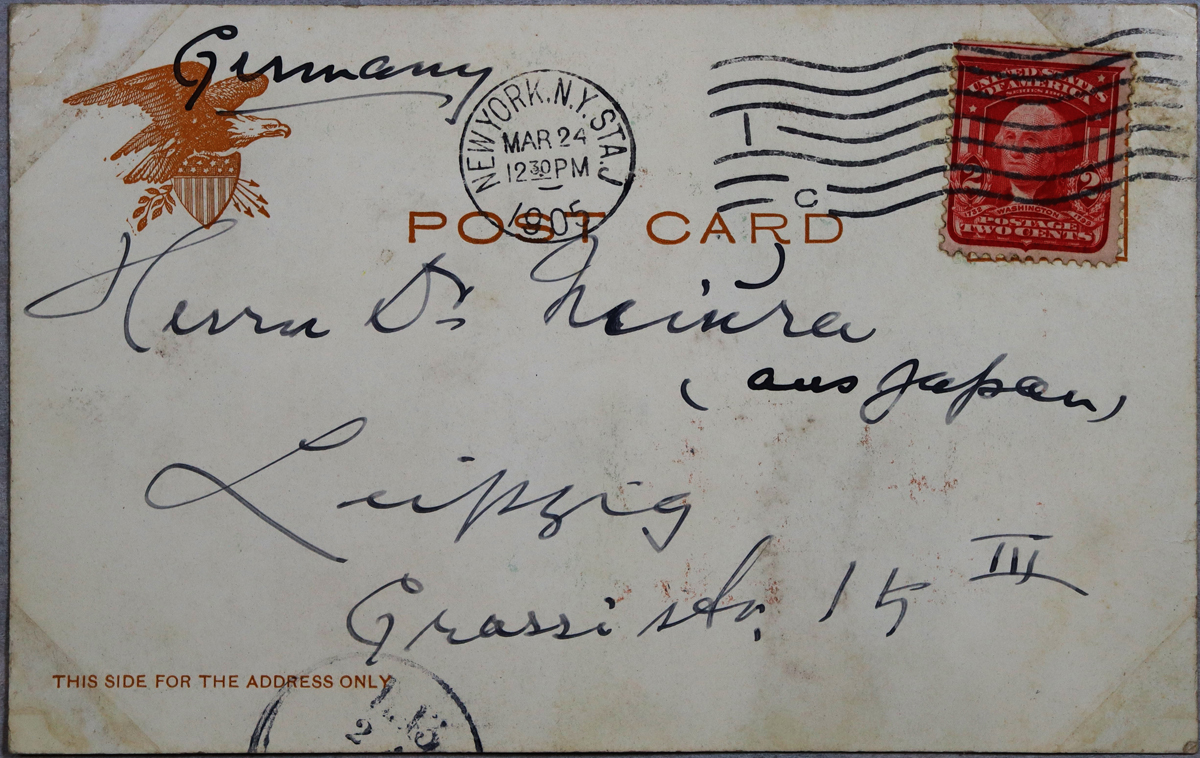 Germany
NEW YORK, N.Y. STA. J
MAR 24
12 30 PM
1905
1
C
UNITED STATES
OF AMERICA
SERIES 1902
2 2
WASHINGTON
POSTAGE
TWO CENTS
POST CARD
Herrn Dr
(aus Japan)
Leipzig
Grassi str. 15 III
THIS SIDE FOR THE ADDRESS ONLY